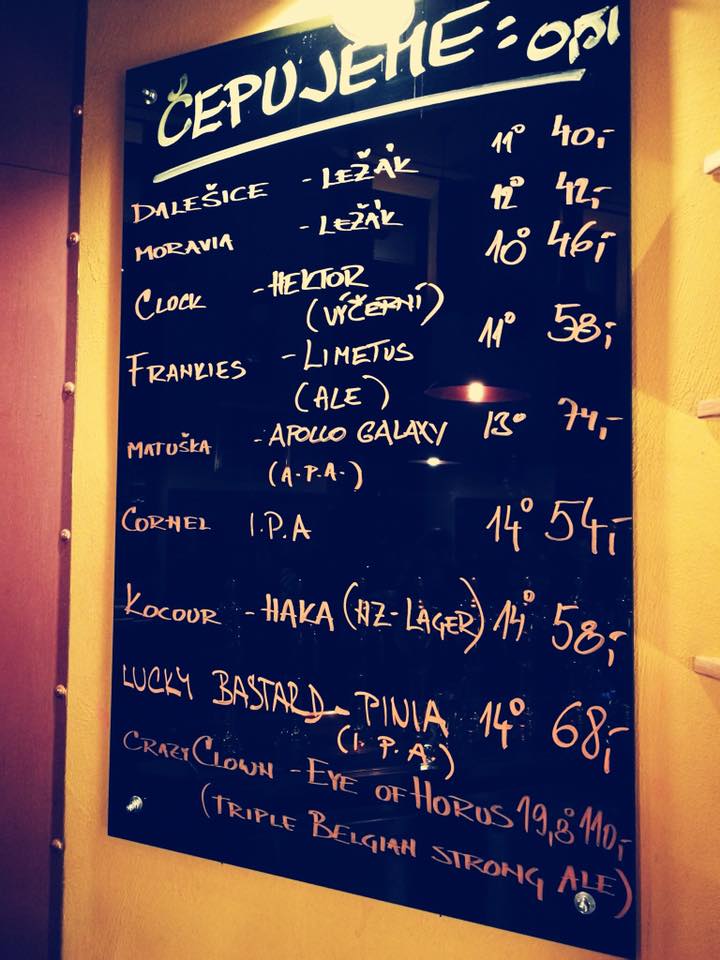 ČEPUJEME: 0,5l
DALEŠICE - LEŽÁK 11° 40,-
MORAVIA - LEŽÁK 12° 42,-
CLOCK - HEKTOR 10° 46,-
(VÝČEPNÍ)
FRANKIES - LIMETUS 11° 58,-
(ALE)
MATUŠKA - APOLLO GALAXY 13° 74,-
(A.P.A.)
CORNEL I.P.A 14° 54,-
KOCOUR - HAKA (NZ-LAGER) 14° 58,-
LUCKY BASTARD - PINIA 14° 68,-
(I.P.A.)
CRAZY CLOWN - EYE OF HORUS 19,8° 110,-
(TRIPLE BELGIAN STRONG ALE)